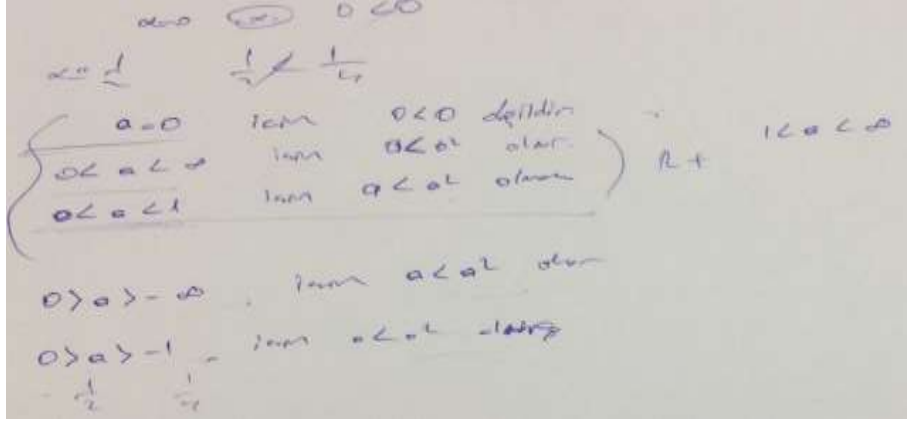 a=0 0<0
a=1/2 1/2 < 1/4
a=0 için 0<0 değildir
0<a<∞ için a<a² olur
0<a<1 için a<a² olmaz
R+ 1<a<∞
0>a>-∞ için a<a² olur
0>a>-1 için a<a²
-1/2 1/4